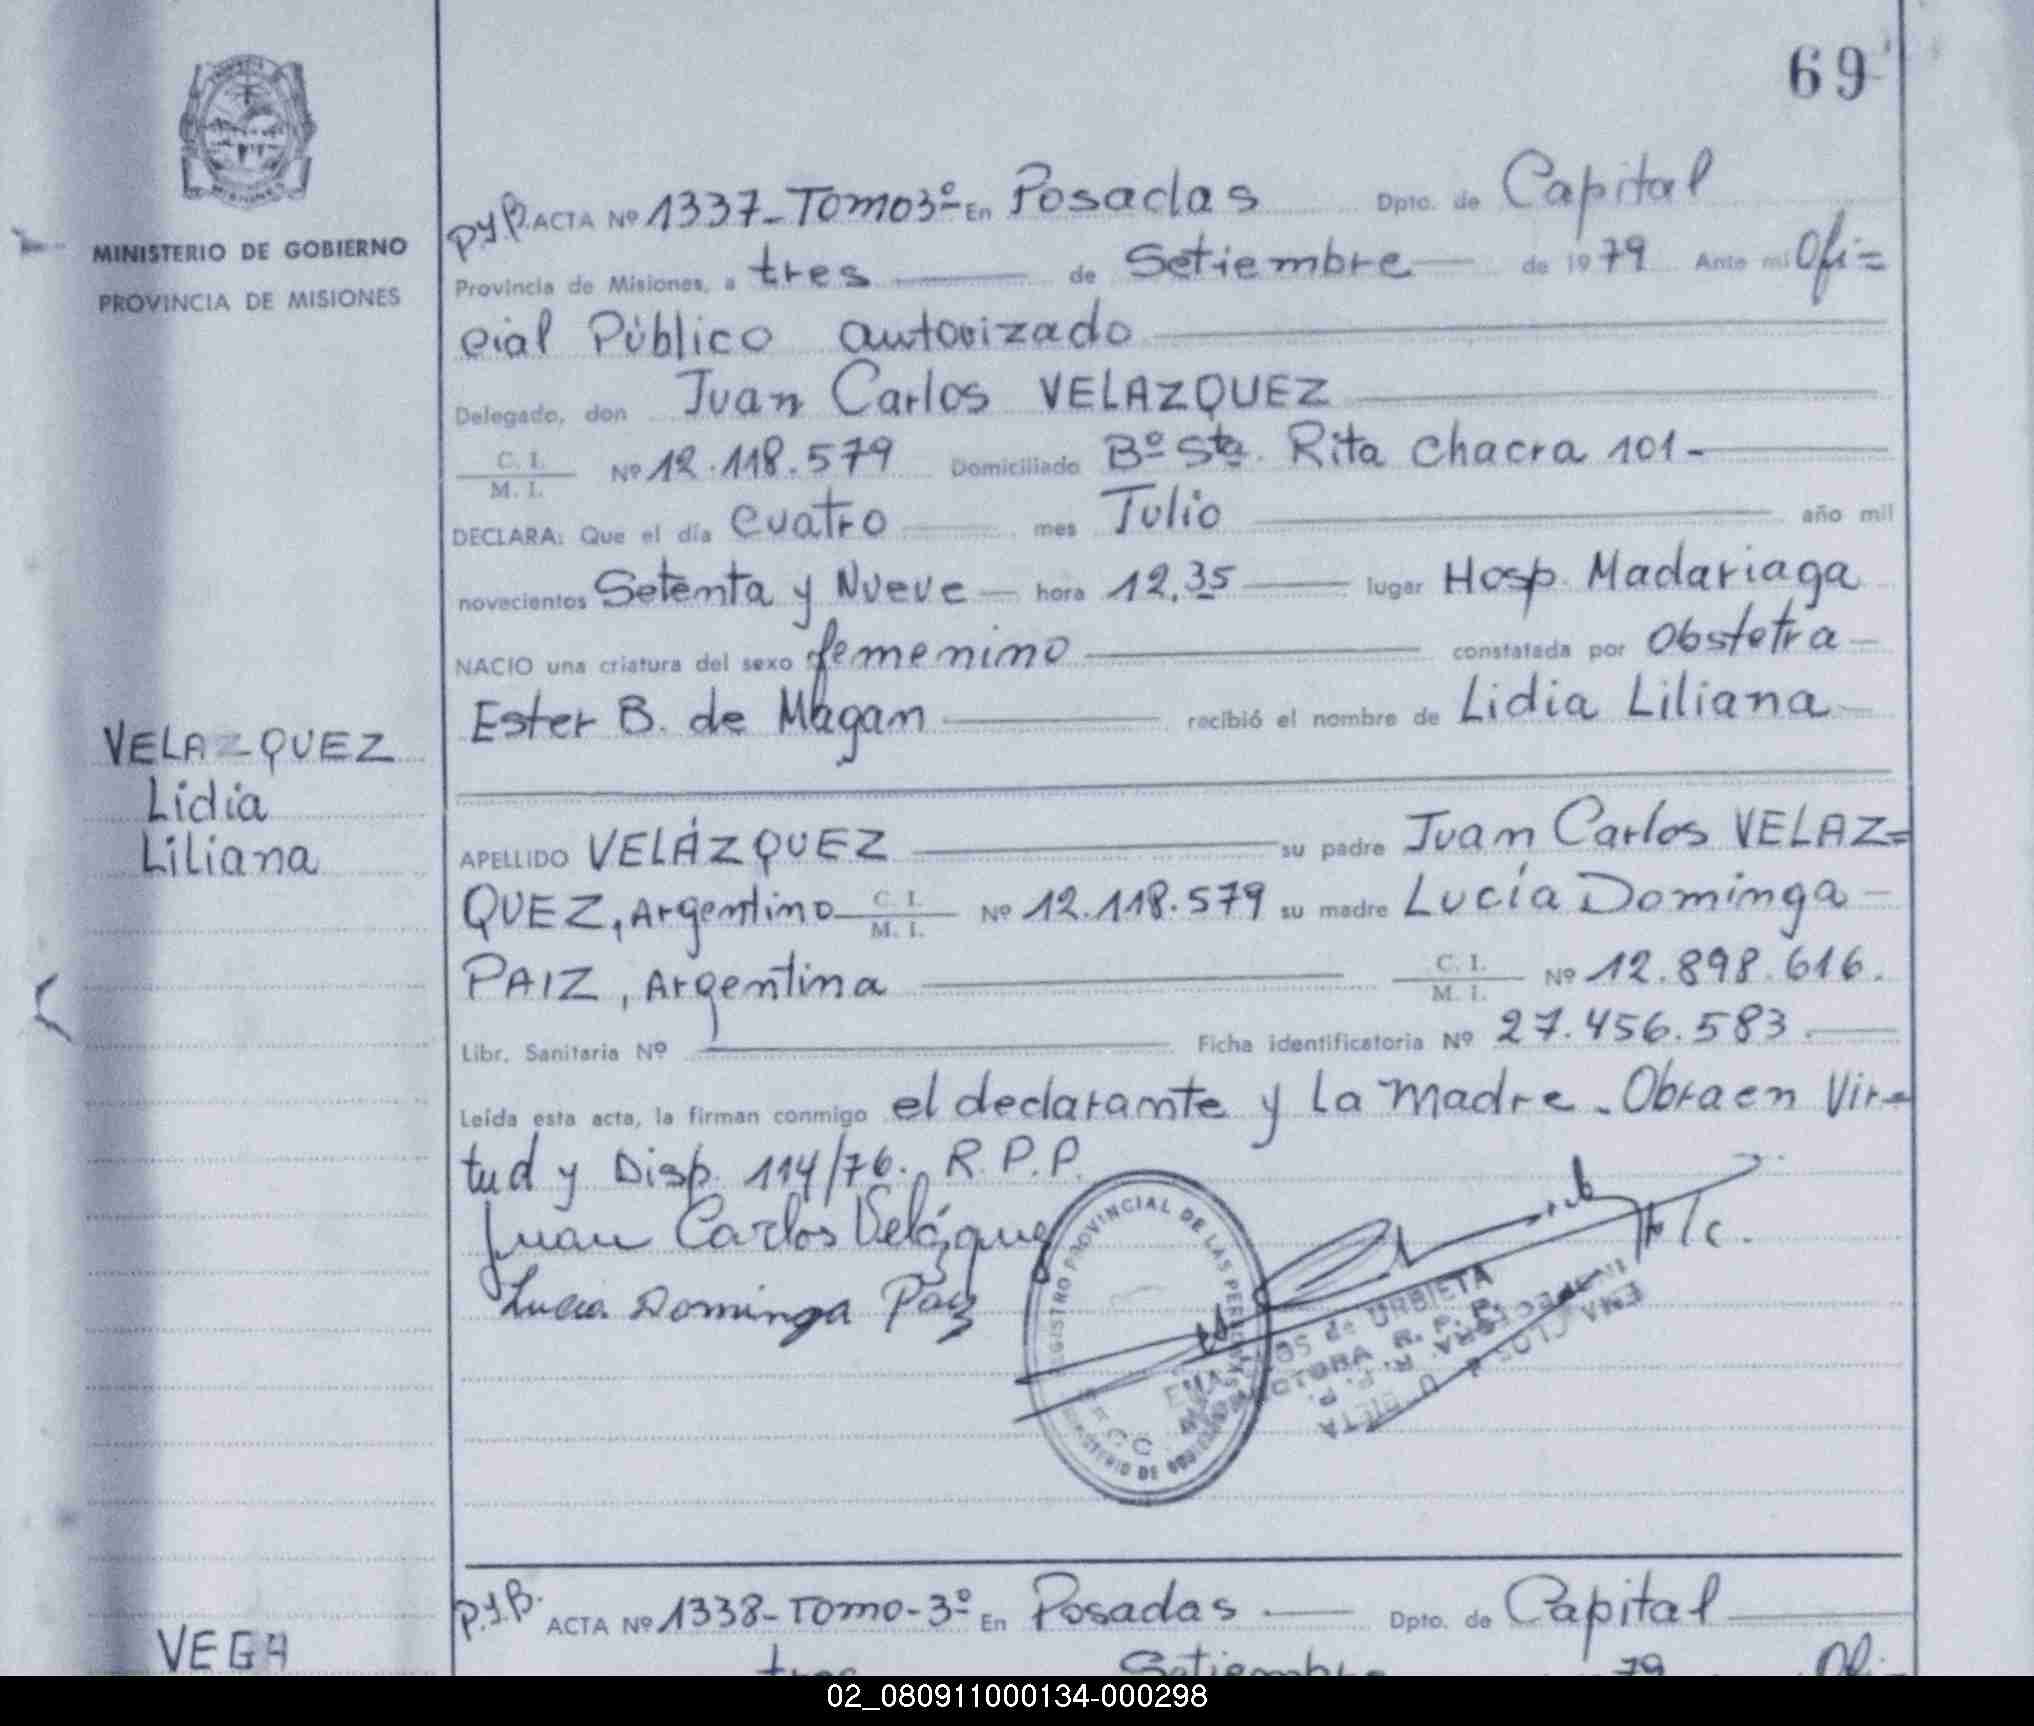 69
MINISTERIO DE GOBIERNO
PROVINCIA DE MISIONES
ACTA Nº 1337-Tomo 3º En Posadas Dpto. de Capital
Provincia de Misiones, a tres de Setiembre de 1979 Ante mi Ofi=
cial Público autorizado
Delegado, don Juan Carlos VELAZQUEZ
C. I.
M. I. Nº 12.118.579 Domiciliado Bº Sta. Rita Chacra 101-
DECLARA: Que el día cuatro mes Julio año mil
novecientos Setenta y Nueve hora 12.35 lugar Hosp. Madariaga
NACIO una criatura del sexo femenino constatada por Obstetra
Ester B. de Magan recibió el nombre de Lidia Liliana
VELAZQUEZ
Lidia
Liliana
APELLIDO VELÁZQUEZ su padre Juan Carlos VELAZ=
QUEZ, Argentino C. I. M. I. Nº 12.118.579 su madre Lucía Dominga
PAIZ, Argentina C. I. M. I. Nº 12.898.616.
Libr. Sanitaria Nº Ficha identificatoria Nº 27.456.583.
Leída esta acta, la firman conmigo el declarante y la madre. Obra en Vir=
tud y Disp. 114/76. R.P.P.
Juan Carlos Velázquez
Lucia Dominga Paiz
REGISTRO PROVINCIAL DE LAS PERSONAS
MINISTERIO DE GOBIERNO
de URBIETA
P.J.B. ACTA Nº 1338-Tomo-3º En Posadas Dpto. de Capital
VEGA
tres Setiembre 79 Ofi-
02_080911000134-000298